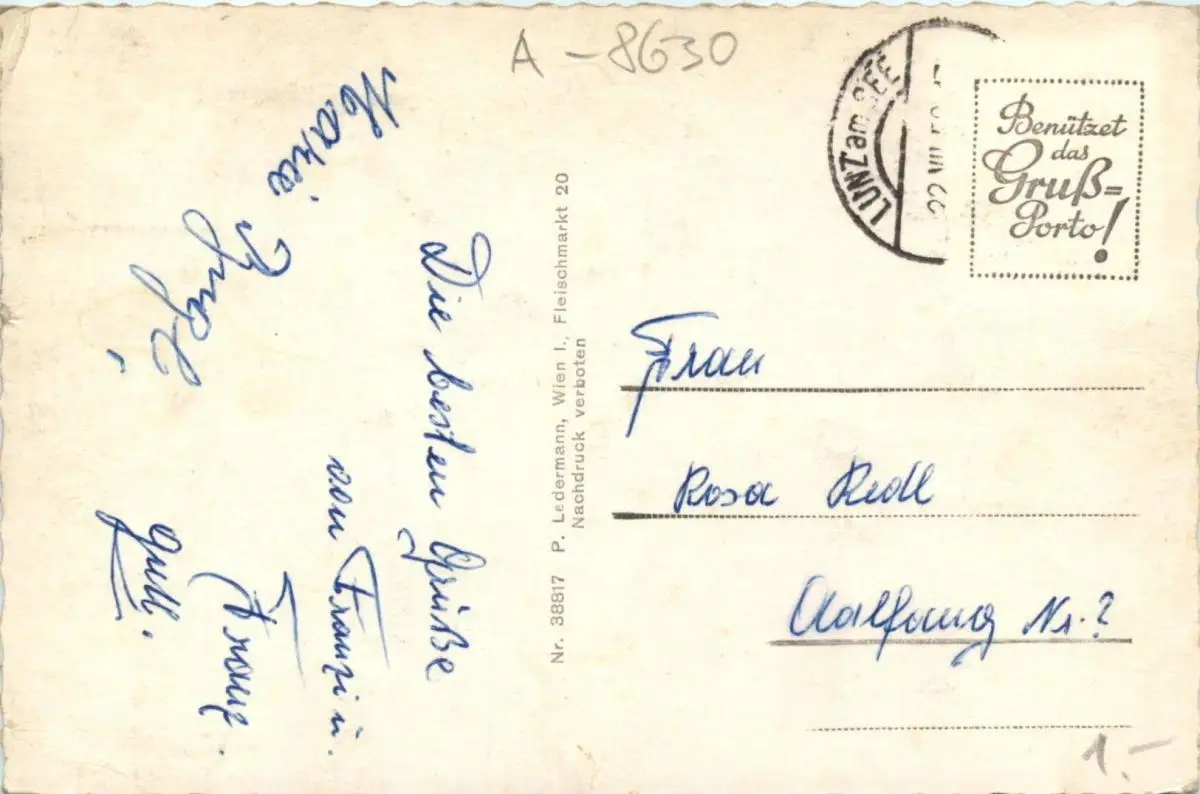 A-8630
LUNZ am SEE
22 VII 59
Benützet
das
Gruß=
Porto!
Die besten Grüße
von Franzi u.
Franz.
Gudl.
Nr. 38817 P. Ledermann, Wien I., Fleischmarkt 20
Nachdruck verboten
Frau
Rosa Redl
Aalfang Nr. ?
1.-